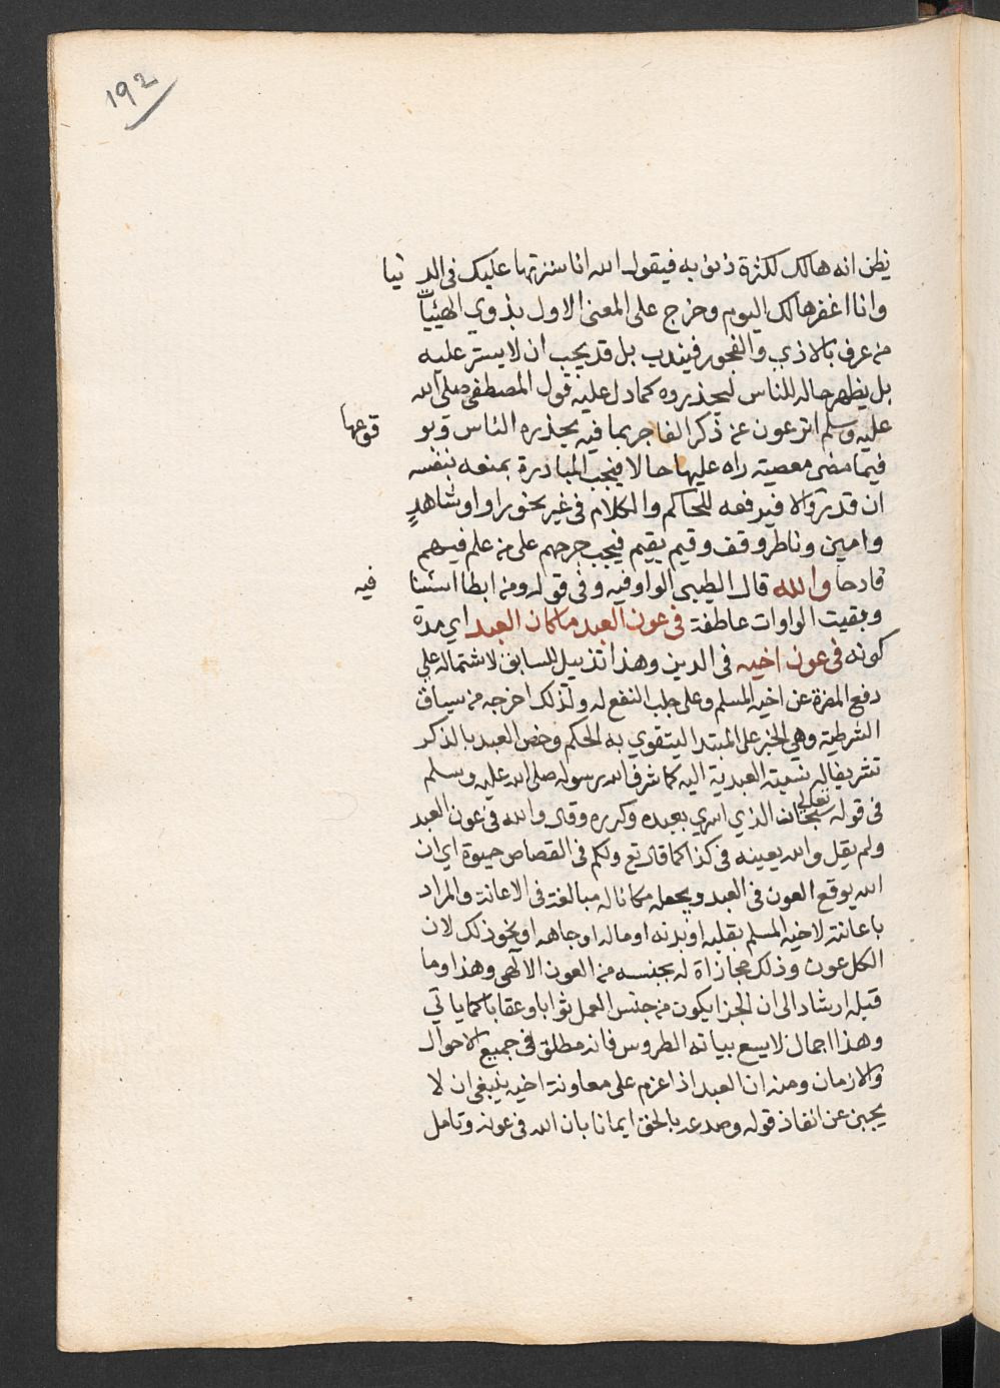 192
يظن انه هالك لكثرة ذنوبه فيقول الله انا سترتها عليك في الدنيا
وانا اغفرها لك اليوم وخرج على المعنى الاول بذوي الهيئات
من عرف بالاذي والفجور فيندب بل قد يجب ان لا يستر عليه
بل يظهر حاله للناس ليحذروه كما دل عليه قول المصطفى صلى الله
عليه وسلم اترعون عن ذكر الفاجر بما فيه يحذره الناس وبوقوعها
فيما مضى معصية راه عليها حالا فيجب المبادرة بمنعه بنفسه
ان قدر والا فيرفعه للحاكم والكلام في غير نحو راو او شاهد
وامين وناظر وقف وقيم يتيم فيجب جرحهم على من علم فيهم
قادحا والله قال الطيبي الواو فيه وفي قوله ومن ابطا استئنافيه
وبقيت الواوات عاطفة في عون العبد ما كان العبد اي مدة
كونه في عون اخيه في الدين وهذا تذييل للسابق لاشتماله على
دفع المضرة عن اخيه المسلم وعلى جلب النفع له ولذلك اخرجه من سياق
الشرطية وهي الخبر على المبتدا ليتقوي به الحكم وخص العبد بالذكر
تشريفا له نسبة العبدية اليه كما شرف الله رسوله صلى الله عليه وسلم
في قوله تعالى سبحان الذي اسري بعبده وكرره وقال والله في عون العبد
ولم يقل والله يعينه في كذا كما قال تع ولكم في القصاص حيوة اي ان
الله يوقع العون في العبد ويجعله مكانا له مبالغة في الاعانة والمراد
باعانته لاخيه المسلم بقلبه او بدنه او ماله او جاهه او نحو ذلك لان
الكل عون وذلك مجازاة له بجنسه من العون الالهي وهذا وما
قبله ارشاد الى ان الجزا يكون من جنس العمل ثوابا وعقابا كما ياتي
وهذا اجمال لا يسع بيانه الطروس فانه مطلق في جميع الاحوال
والازمان ومنه ان العبد اذا عزم على معاونة اخيه ينبغي ان لا
يجبن عن انفاذ قوله وصدعه بالحق ايمانا بان الله في عونه وتامل